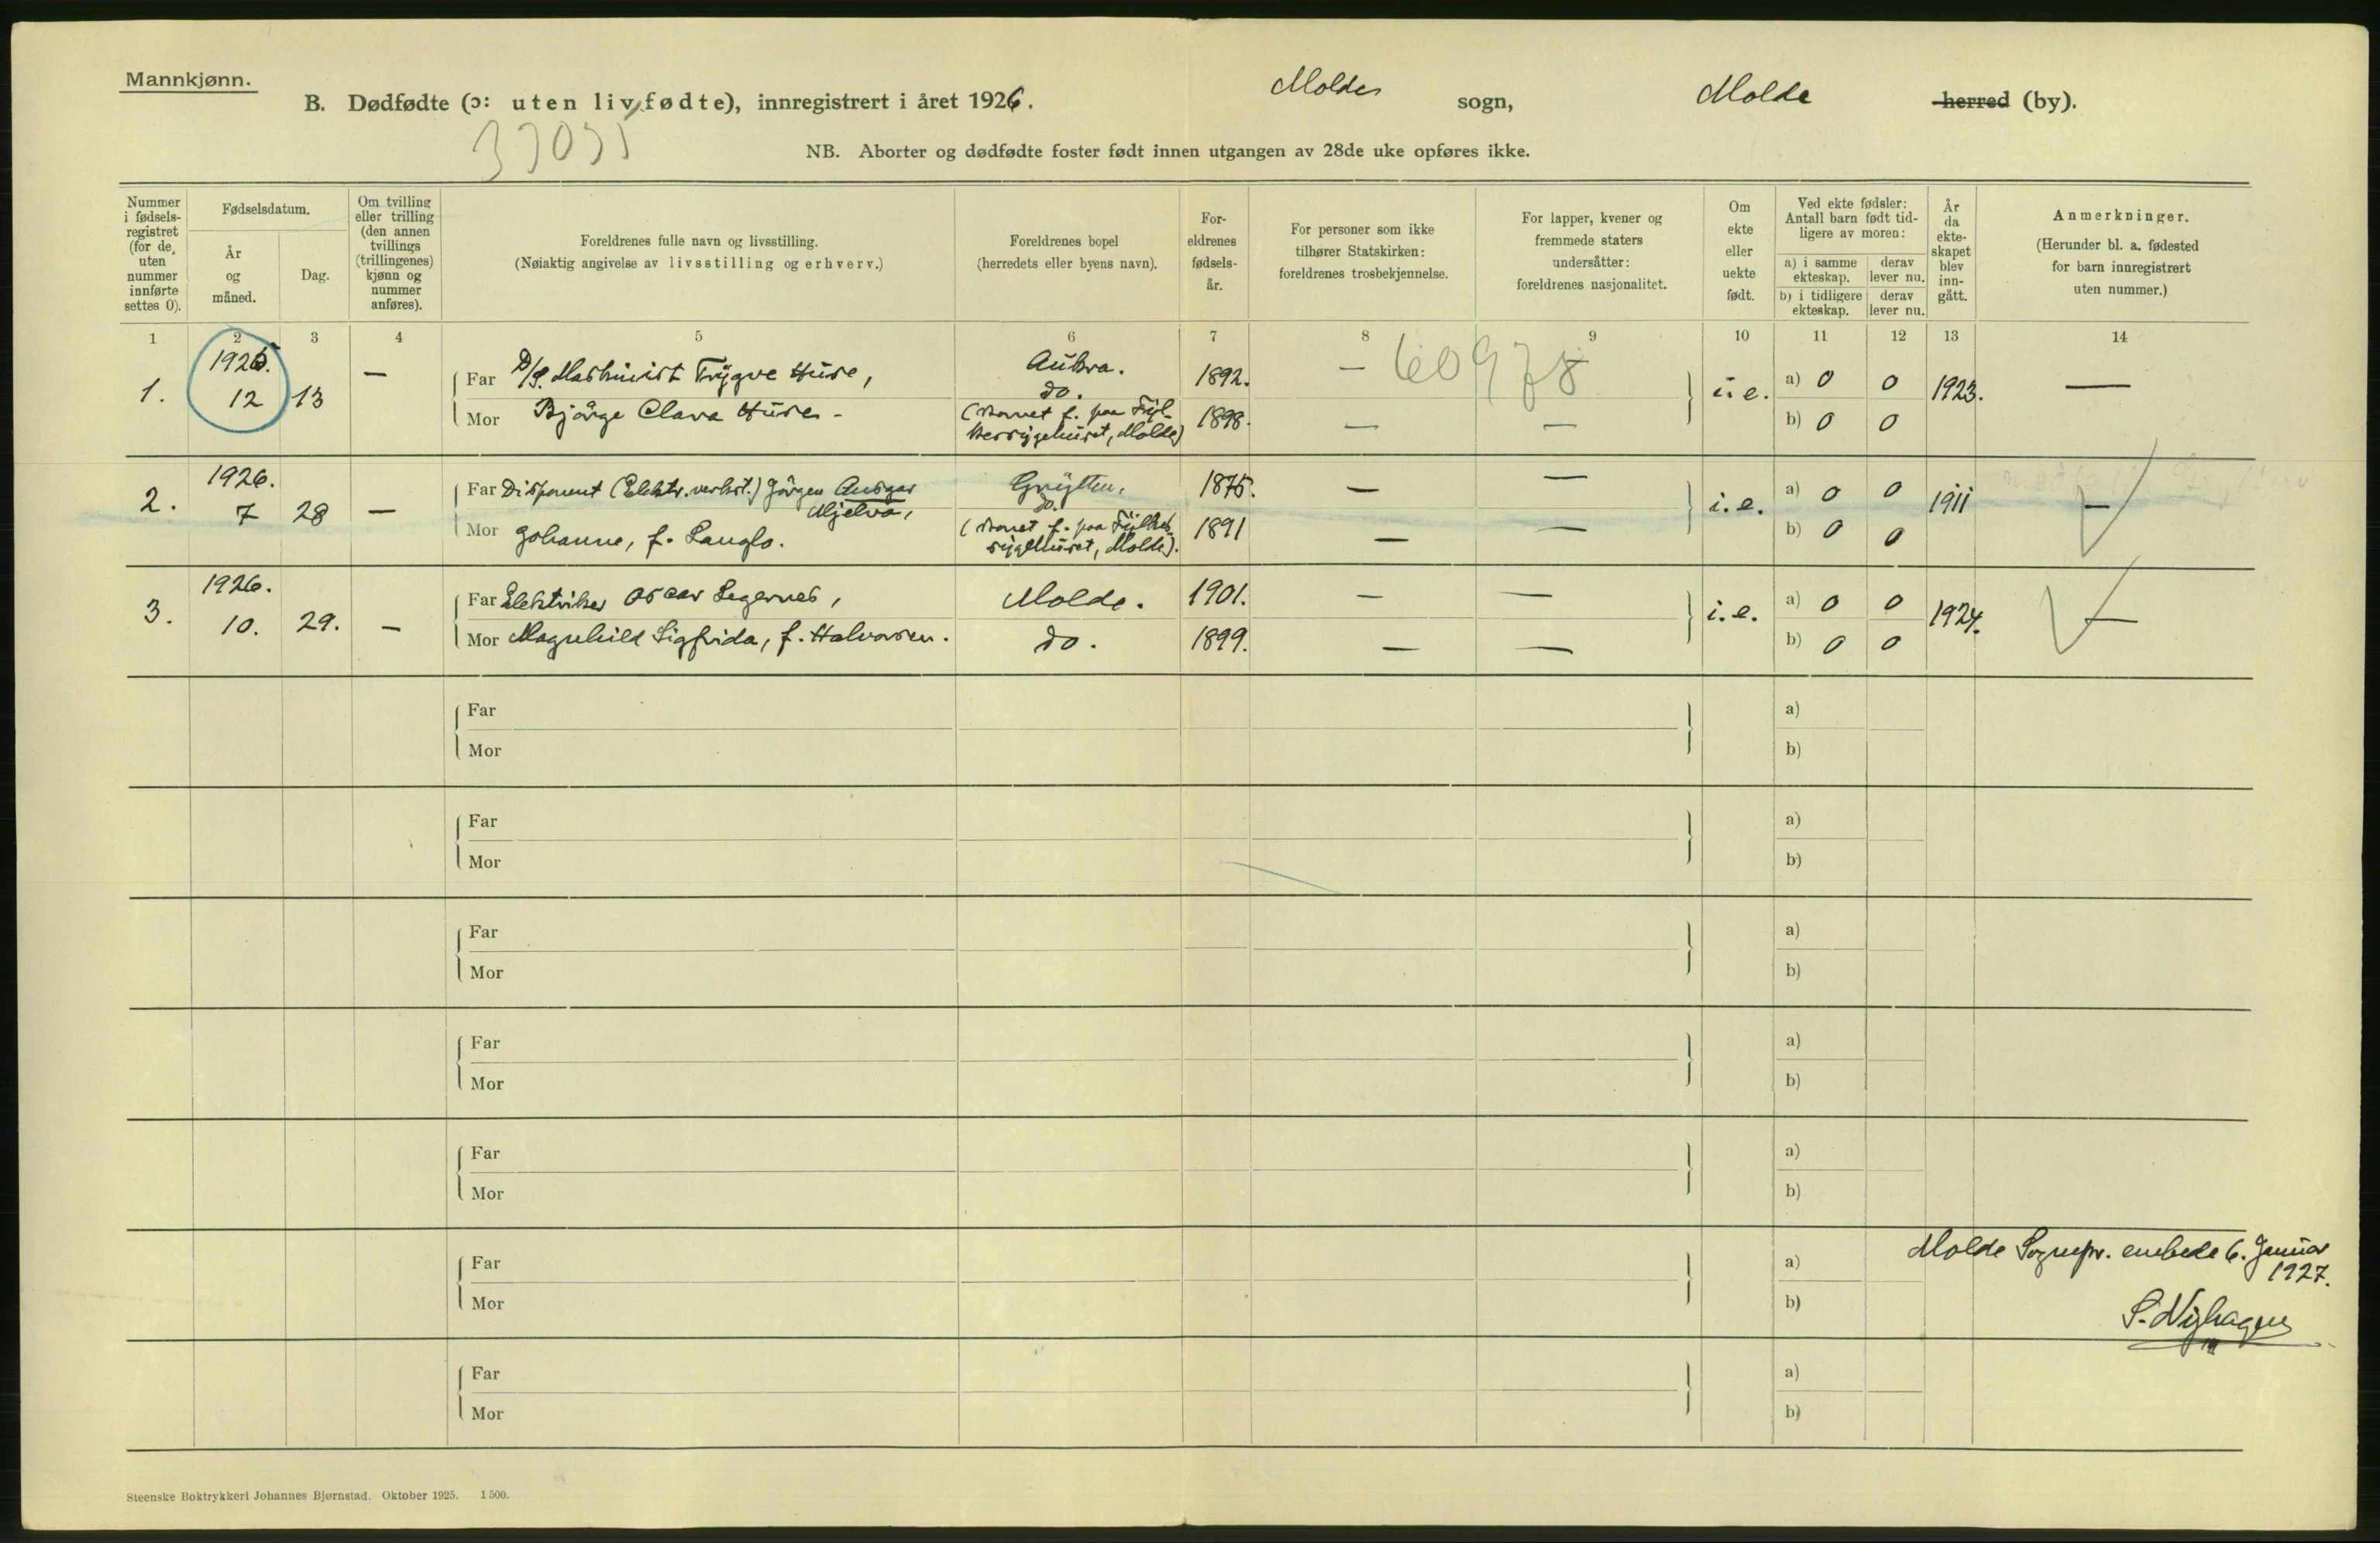 Mannkjønn.
B. Dødfødte (ɔ: uten liv fødte), innregistrert i året 1926. Molde sogn, Molde herred (by).
NB. Aborter og dødfødte foster født innen utgangen av 28de uke opføres ikke.
Nummer i fødsels-registret (for de uten nummer innførte settes 0).
Fødselsdatum.
År og måned.
Dag.
Om tvilling eller trilling (den annen tvillings (trillingenes) kjønn og nummer anføres).
Foreldrenes fulle navn og livsstilling.
(Nøiaktig angivelse av livsstilling og erhverv.)
Foreldrenes bopel
(herredets eller byens navn).
For-eldrenes fødsels-år.
For personer som ikke tilhører Statskirken: foreldrenes trosbekjennelse.
For lapper, kvener og fremmede staters undersåtter: foreldrenes nasjonalitet.
Om ekte eller uekte født.
Ved ekte fødsler: Antall barn født tid-ligere av moren:
a) i samme ekteskap.
derav lever nu.
b) i tidligere ekteskap.
derav lever nu.
År da ekte-skapet blev inn-gått.
Anmerkninger.
(Herunder bl. a. fødested for barn innregistrert uten nummer.)
1 2 3 4 5 6 7 8 9 10 11 12 13 14
60978
1. 1925. 12 13 — Far D/S. Maskinist Trygve Huse, Aukra. 1892. — i. e. a) 0 0 1923. —
Mor Bjørge Clara Huse - do. (Barnet f. paa Fyl-kessygehuset, Molde) 1898. — — b) 0 0
2. 1926. 7 28 — Far Disponent (Elektr. verkst.) Jørgen Ansgar Mjelva, Grytten. 1875. — — i. e. a) 0 0 1911 —
Mor Johanne, f. Langlo. do. (Barnet f. paa Fylkes-sygehuset, Molde). 1891 — — b) 0 0
3. 1926. 10. 29. — Far Elektriker Oscar Legernes, Molde. 1901. — — i. e. a) 0 0 1924. —
Mor Magnhild Sigfrida, f. Halvorsen. do. 1899. — — b) 0 0
Far a)
Mor b)
Far a)
Mor b)
Far a)
Mor b)
Far a)
Mor b)
Far a)
Mor b)
Far a)
Mor b)
Molde Sognepr. embede 6. Januar
1927.
S. Nyhagen
Far a)
Mor b)
Steenske Boktrykkeri Johannes Bjørnstad. Oktober 1925. 1500.